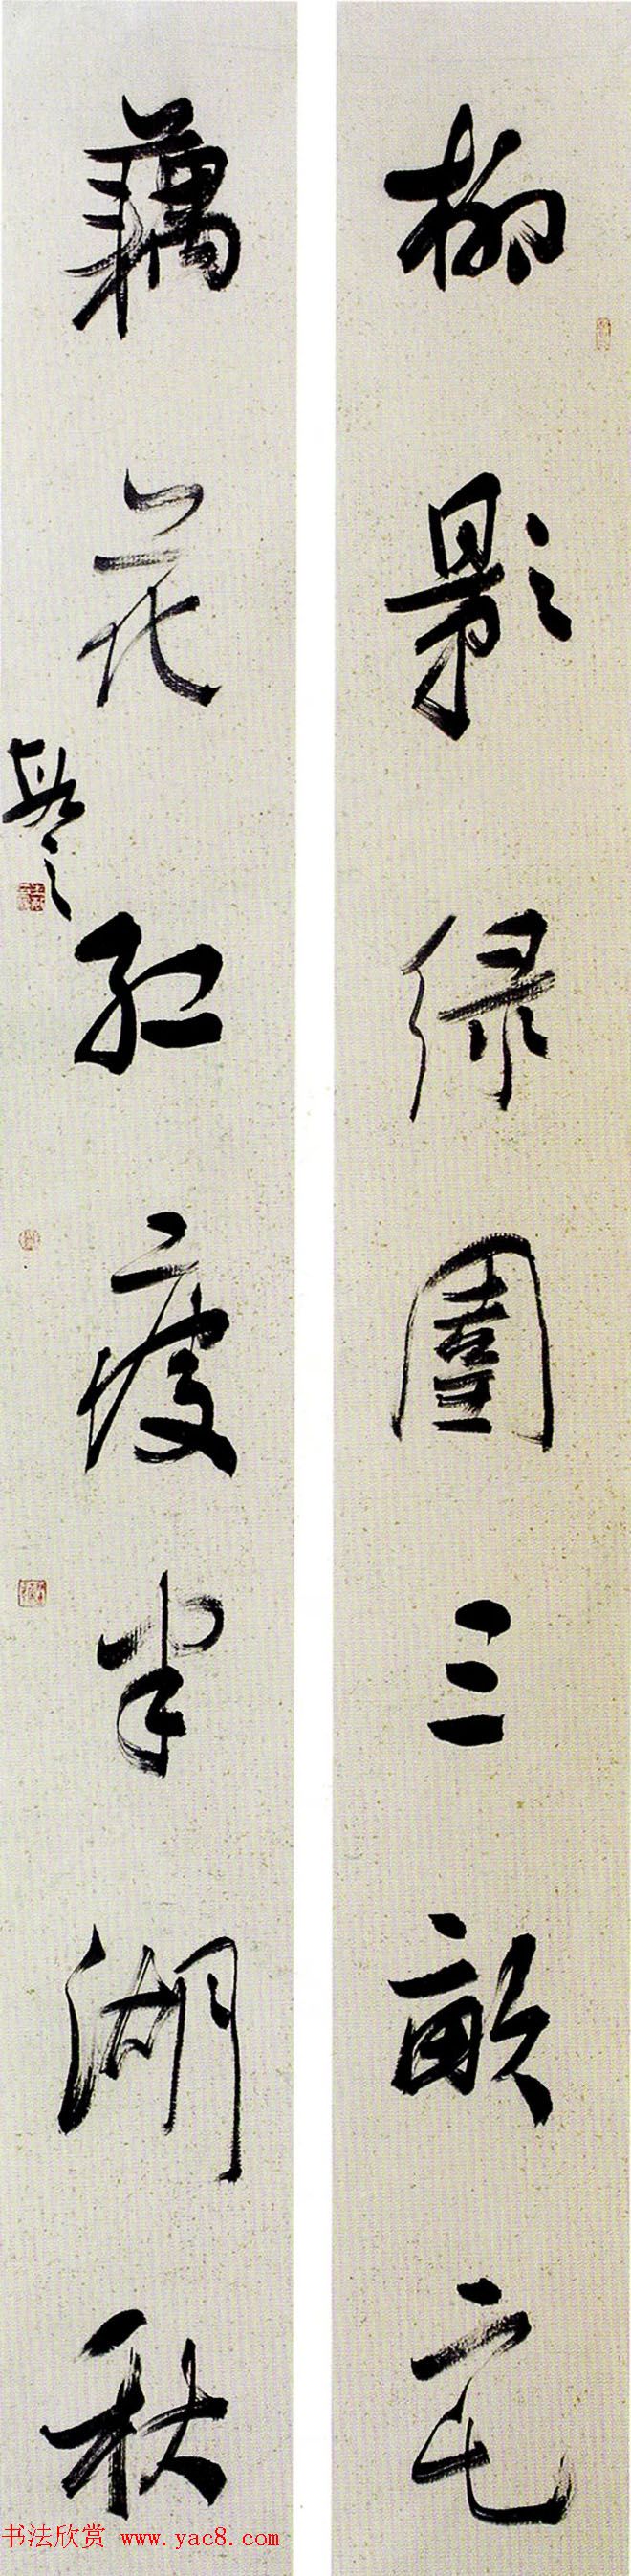 柳影绿圍三畝宅
藕花红瘦半湖秋
书法欣赏 www.yac8.com